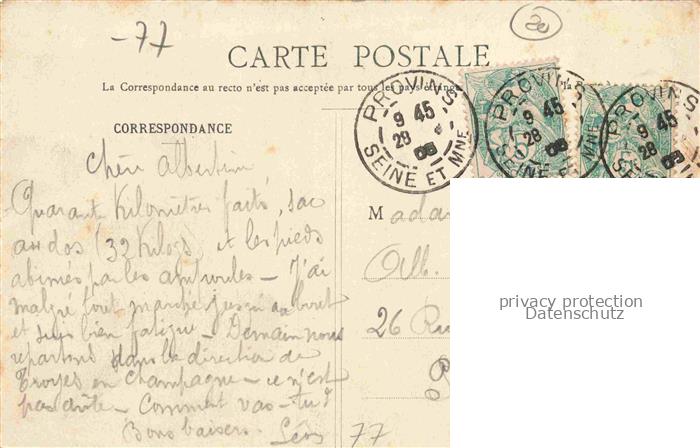 -77
20
CARTE POSTALE
La Correspondance au recto n'est pas acceptée par tous les pays étrange
CORRESPONDANCE
PROVINS
9 45
28
08
SEINE ET MNE
PROVINS
9 45
28
08
SEINE ET MNE
PROVINS
9 45
28
08
SEINE ET MNE
Chère Albertine
Quarante Kilomètres faits, sac
au dos (32 Kilogs) et les pieds
abimés par les ampoules - J'ai
malgré tout marché jusqu'au bout
et suis bien fatigué - Demain nous
repartons dans la direction de
Troyes en Champagne - ce n'est
pas drôle - Comment vas-tu?
Bons baisers. Léon
77
Mada
Alb.
26 Ru
P
privacy protection
Datenschutz